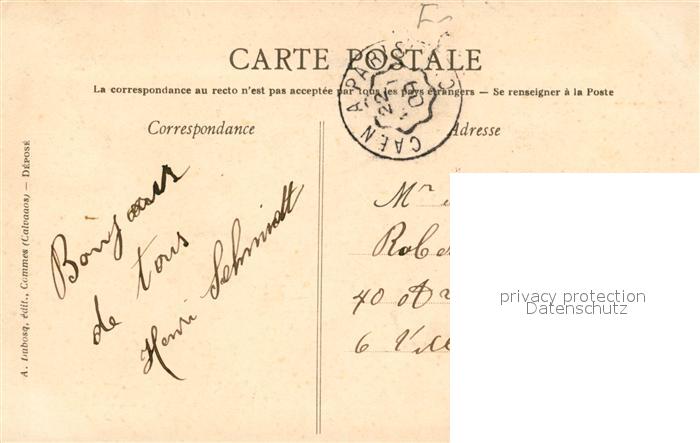 CARTE POSTALE
La correspondance au recto n'est pas acceptée par tous les pays étrangers — Se renseigner à la Poste
CAEN A PARIS
22
09
Correspondance
Adresse
Bonjours
de tous
Henri Schmidt
Mr
Robe
40
6 Vill
A. Dubosq, édit., Commes (Calvados) — DÉPOSÉ
privacy protection
Datenschutz